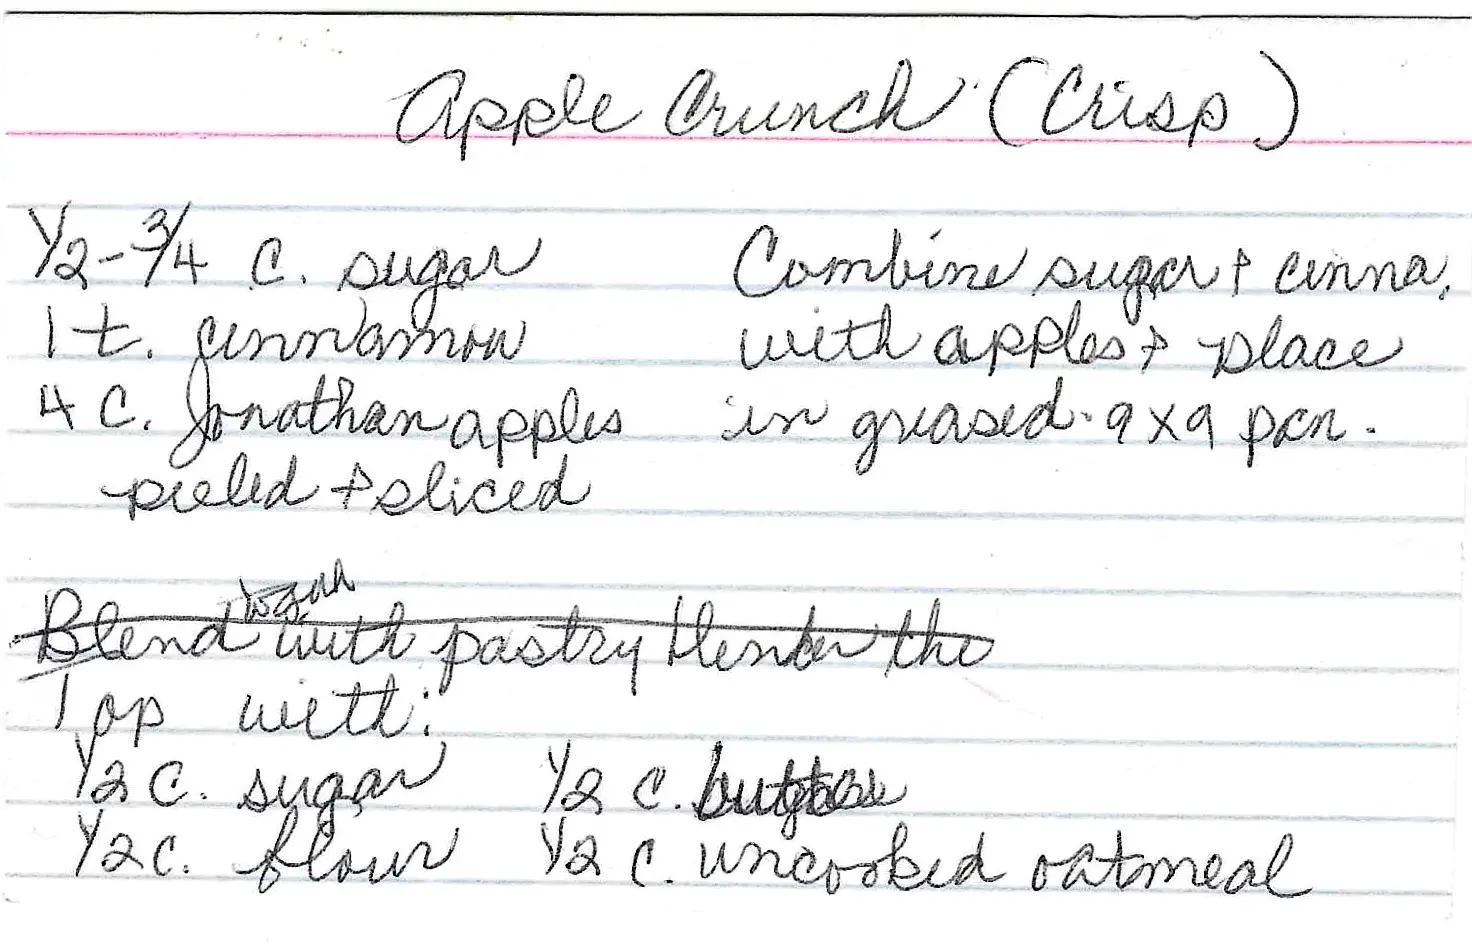 Apple Crunch (Crisp)
1/2-3/4 C. sugar
1 t. cinnamon
4 C. Jonathan apples
peeled + sliced
Combine sugar + cinna.
with apples + place
in greased 9x9 pan.
Blend with pastry blender the
Top with:
1/2 C. sugar
1/2 C. flour
1/2 C. butter
1/2 C. uncooked oatmeal